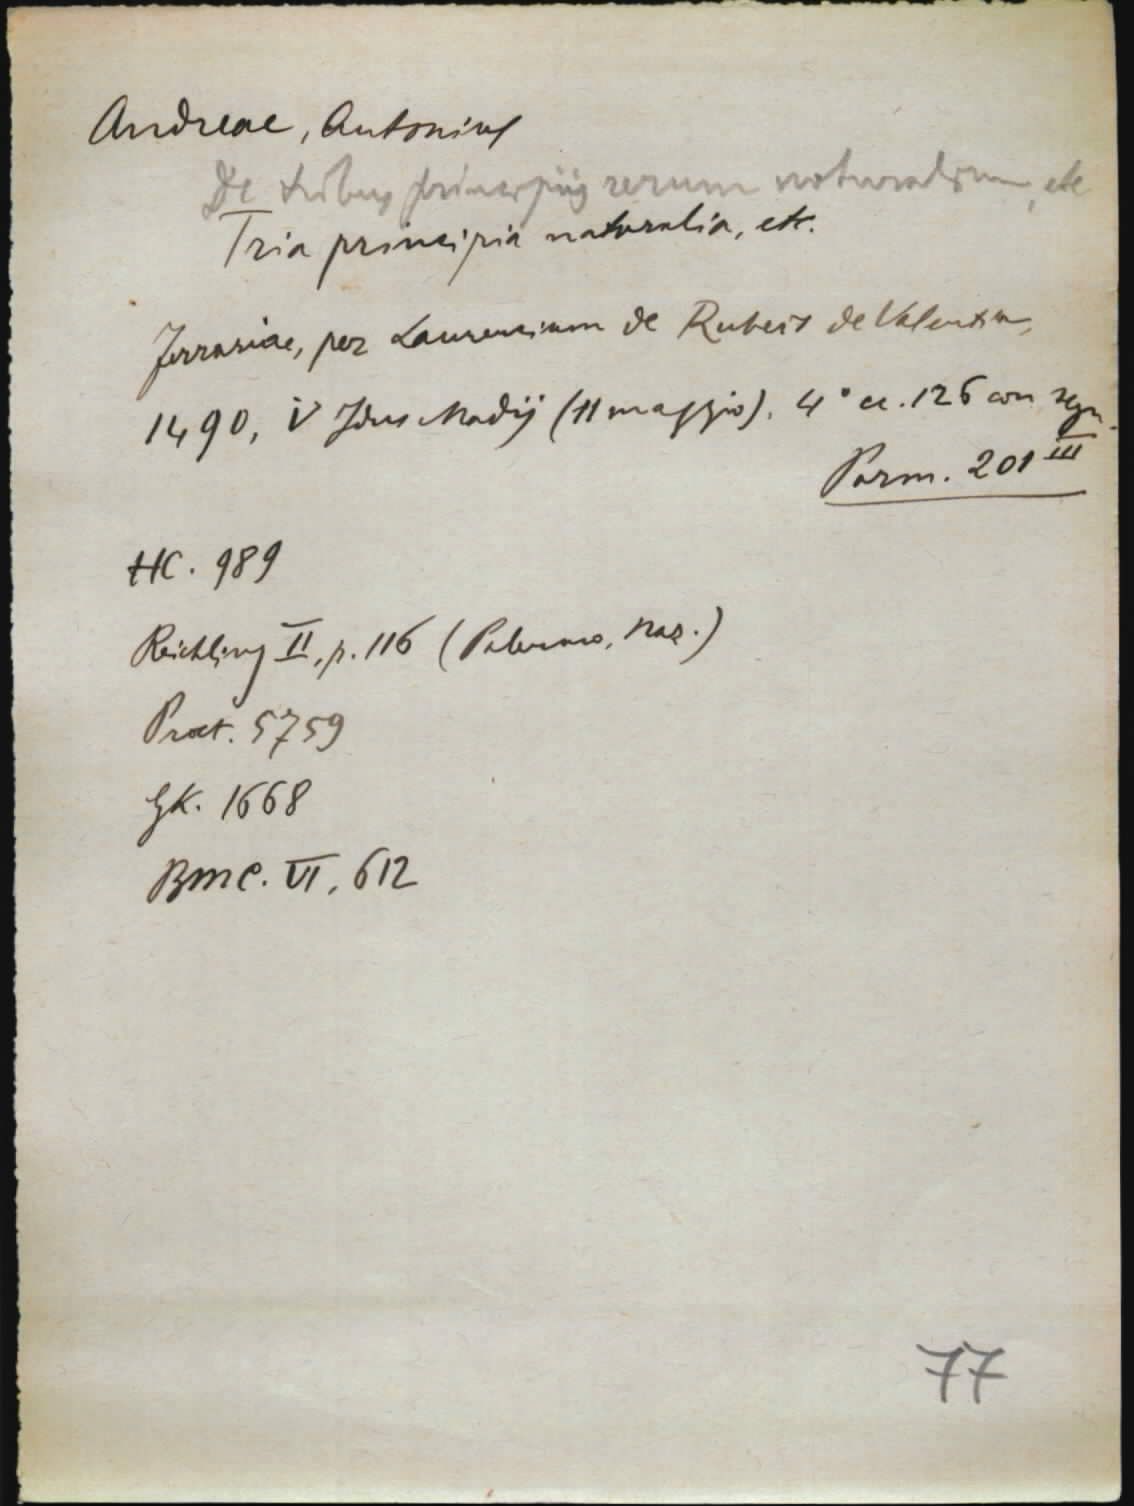 Andreae, Antonius
De tribus principiis rerum naturalium, etc
Tria principia naturalia, etc.
Ferrariae, per Laurencium de Rubeis de Valentia,
1490, V Idus Madij (11 maggio). 4° cc. 126 con segn.
Parm. 201 III
HC. 989
Reichling II, p. 116 (Palermo, Naz.)
Proct. 5759
GK. 1668
BMC. VI, 612
77